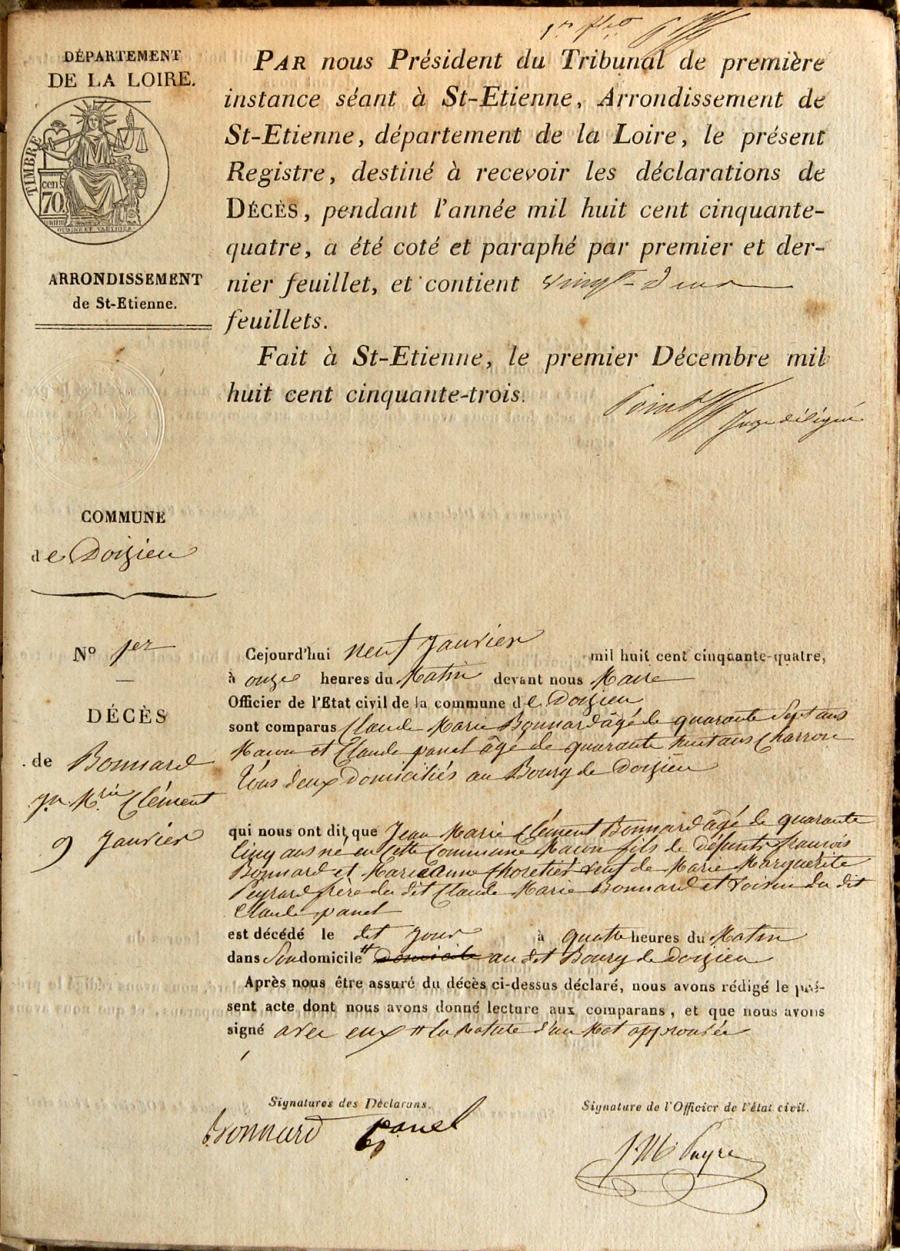 1er f.et
DÉPARTEMENT
DE LA LOIRE.
TIMBRE
cen
70
ARRONDISSEMENT
de St-Etienne.
PAR nous Président du Tribunal de première
instance séant à St-Etienne, Arrondissement de
St-Etienne, département de la Loire, le présent
Registre, destiné à recevoir les déclarations de
DÉCÈS, pendant l'année mil huit cent cinquante-
quatre, a été coté et paraphé par premier et der-
nier feuillet, et contient vingt-deux
feuillets.
Fait à St-Etienne, le premier Décembre mil
huit cent cinquante-trois.
Juge délégué
COMMUNE
de Doizieu
N° 1er
DÉCÈS
de Bonnard
Jn Mrie Clément
9 Janvier
Cejourd'hui neuf Janvier mil huit cent cinquante-quatre,
à onze heures du Matin devant nous Maire
Officier de l'Etat civil de la commune de Doizieu
sont comparus Claude Marie Bonnard âgé de quarante Sept ans
Macon et Claude panel âgé de quarante huit ans Charron
Tous deux domiciliés au Bourg de Doizieu
qui nous ont dit que Jean Marie Clément Bonnard âgé de quarante
Cinq ans né en cette Commune Macon fils de défunts francois
Bonnard et Marieanne thoretier veuf de Marie Marguerite
Peyrard frère du dit Claude Marie Bonnard et voisin du dit
Claude panel
est décédé le dit Jour à quatre heures du Matin
dans Son domicile # domicile au dit Bourg de Doizieu
Après nous être assuré du décès ci-dessus déclaré, nous avons rédigé le pré-
sent acte dont nous avons donné lecture aux comparans, et que nous avons
signé avec eux # la Rature d'un Mot approuvée
Signatures des Déclarans.
Signature de l'Officier de l'état civil.
Bonnard panel
J M Payre